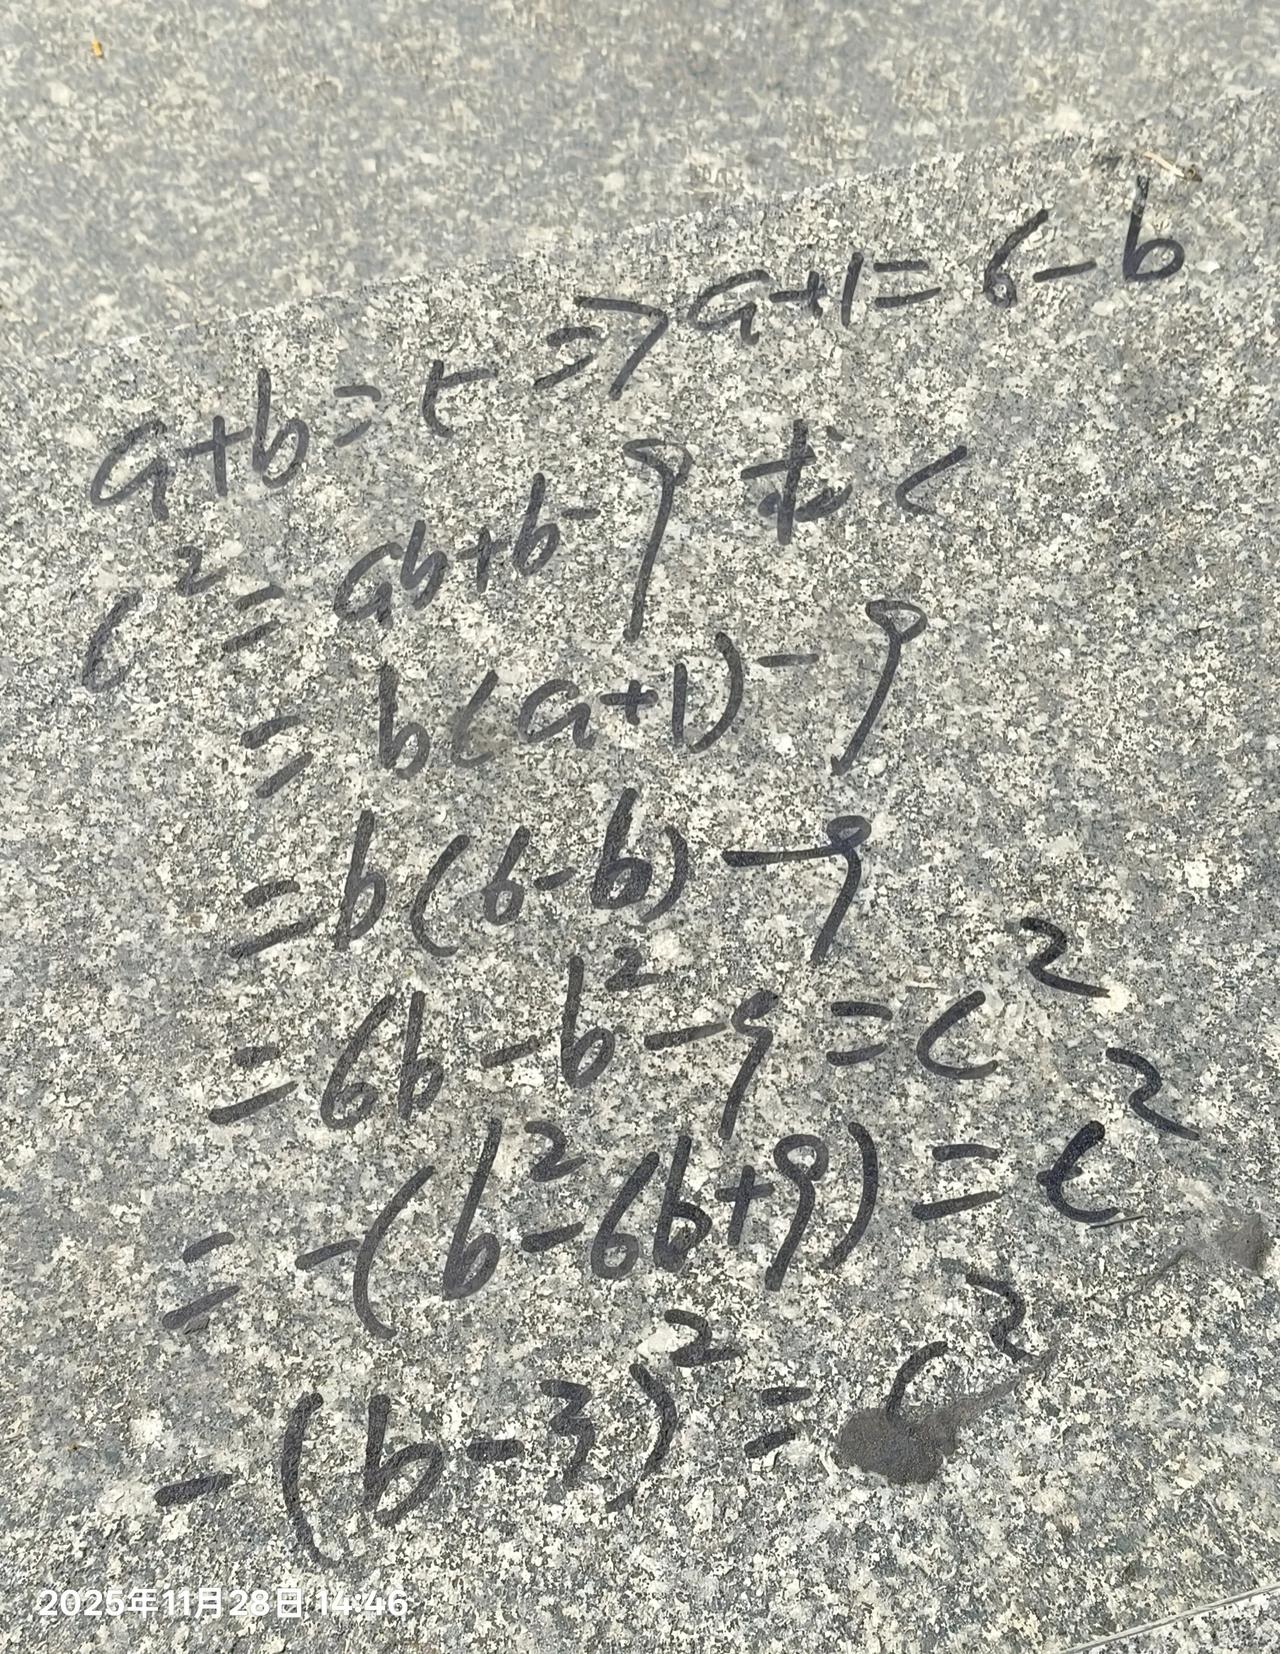 a+b=5 => a+1=6-b
c²=ab+b-9 求c
=b(a+1)-9
=b(6-b)-9
=6b-b²-9=c²
=-(b²-6b+9)=c²
-(b-3)²=c²
2025年11月28日 14:46